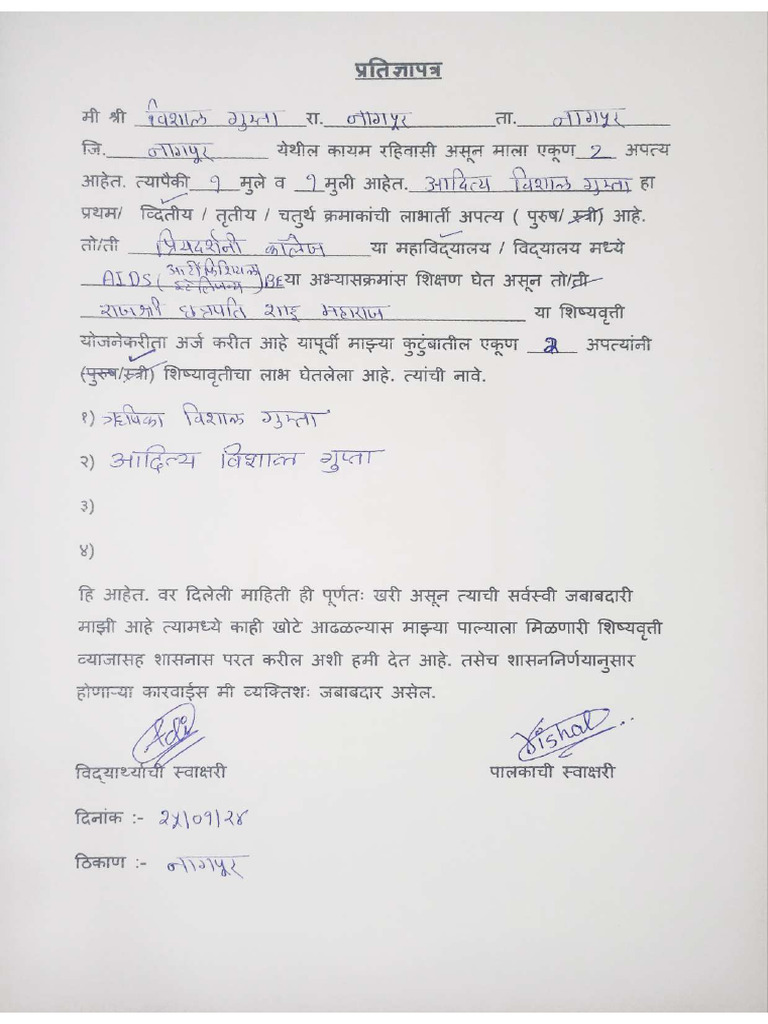 प्रतिज्ञापत्र
मी श्री विशाल गुप्ता रा. नागपूर ता. नागपूर
जि. नागपूर येथील कायम रहिवासी असून माला एकूण 2 अपत्य
आहेत. त्यापैकी १ मुले व १ मुली आहेत. आदित्य विशाल गुप्ता हा
प्रथम/ व्दितीय / तृतीय / चतुर्थ क्रमाकांची लाभार्ती अपत्य ( पुरुष/ स्त्री) आहे.
तो/ती प्रियदर्शनी कॉलेज या महाविद्यालय / विद्यालय मध्ये
AIDS (आर्टीफिशियल इंटेलिजन्स) BE या अभ्यासक्रमांस शिक्षण घेत असून तो/ती
राजश्री छत्रपति शाहू महाराज या शिष्यवृत्ती
योजनेकरीता अर्ज करीत आहे यापूर्वी माझ्या कुटुंबातील एकूण 2 अपत्यांनी
(पुरुष/स्त्री) शिष्यावृतीचा लाभ घेतलेला आहे. त्यांची नावे.
१) ऋषिका विशाल गुप्ता
२) आदित्य विशाल गुप्ता
३)
४)
हि आहेत. वर दिलेली माहिती ही पूर्णतः खरी असून त्याची सर्वस्वी जबाबदारी
माझी आहे त्यामध्ये काही खोटे आढळल्यास माझ्या पाल्याला मिळणारी शिष्यवृत्ती
व्याजासह शासनास परत करील अशी हमी देत आहे. तसेच शासननिर्णयानुसार
होणाऱ्या कारवाईस मी व्यक्तिशः जबाबदार असेल.
Adi Vishal
विद्यार्थ्याची स्वाक्षरी पालकाची स्वाक्षरी
दिनांक :- २५/०१/२४
ठिकाण :- नागपूर